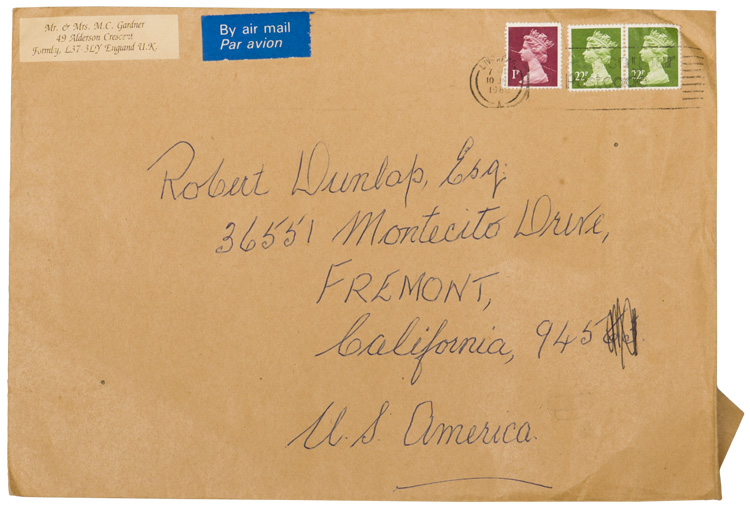 Mr. & Mrs. M.C. Gardner
49 Alderson Crescent
Formby, L37-3LY England U.K.
By air mail
Par avion
1P
22P
22P
Robert Dunlap, Esq.
36551 Montecito Drive,
FREMONT,
California, 945
U.S. America.